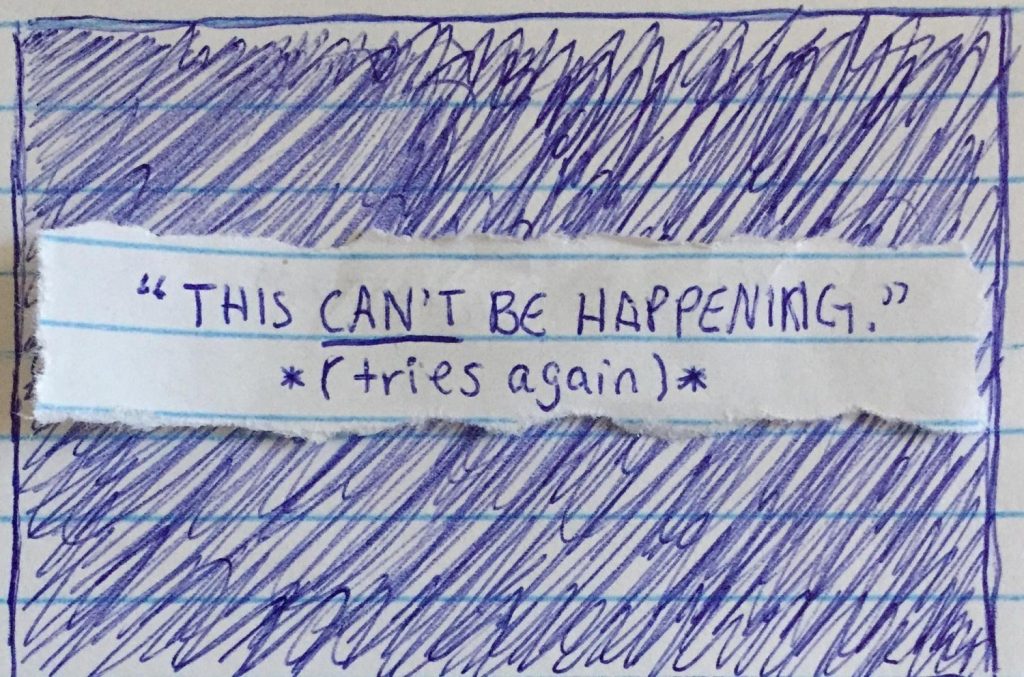 “THIS CAN'T BE HAPPENING.”
*(tries again)*